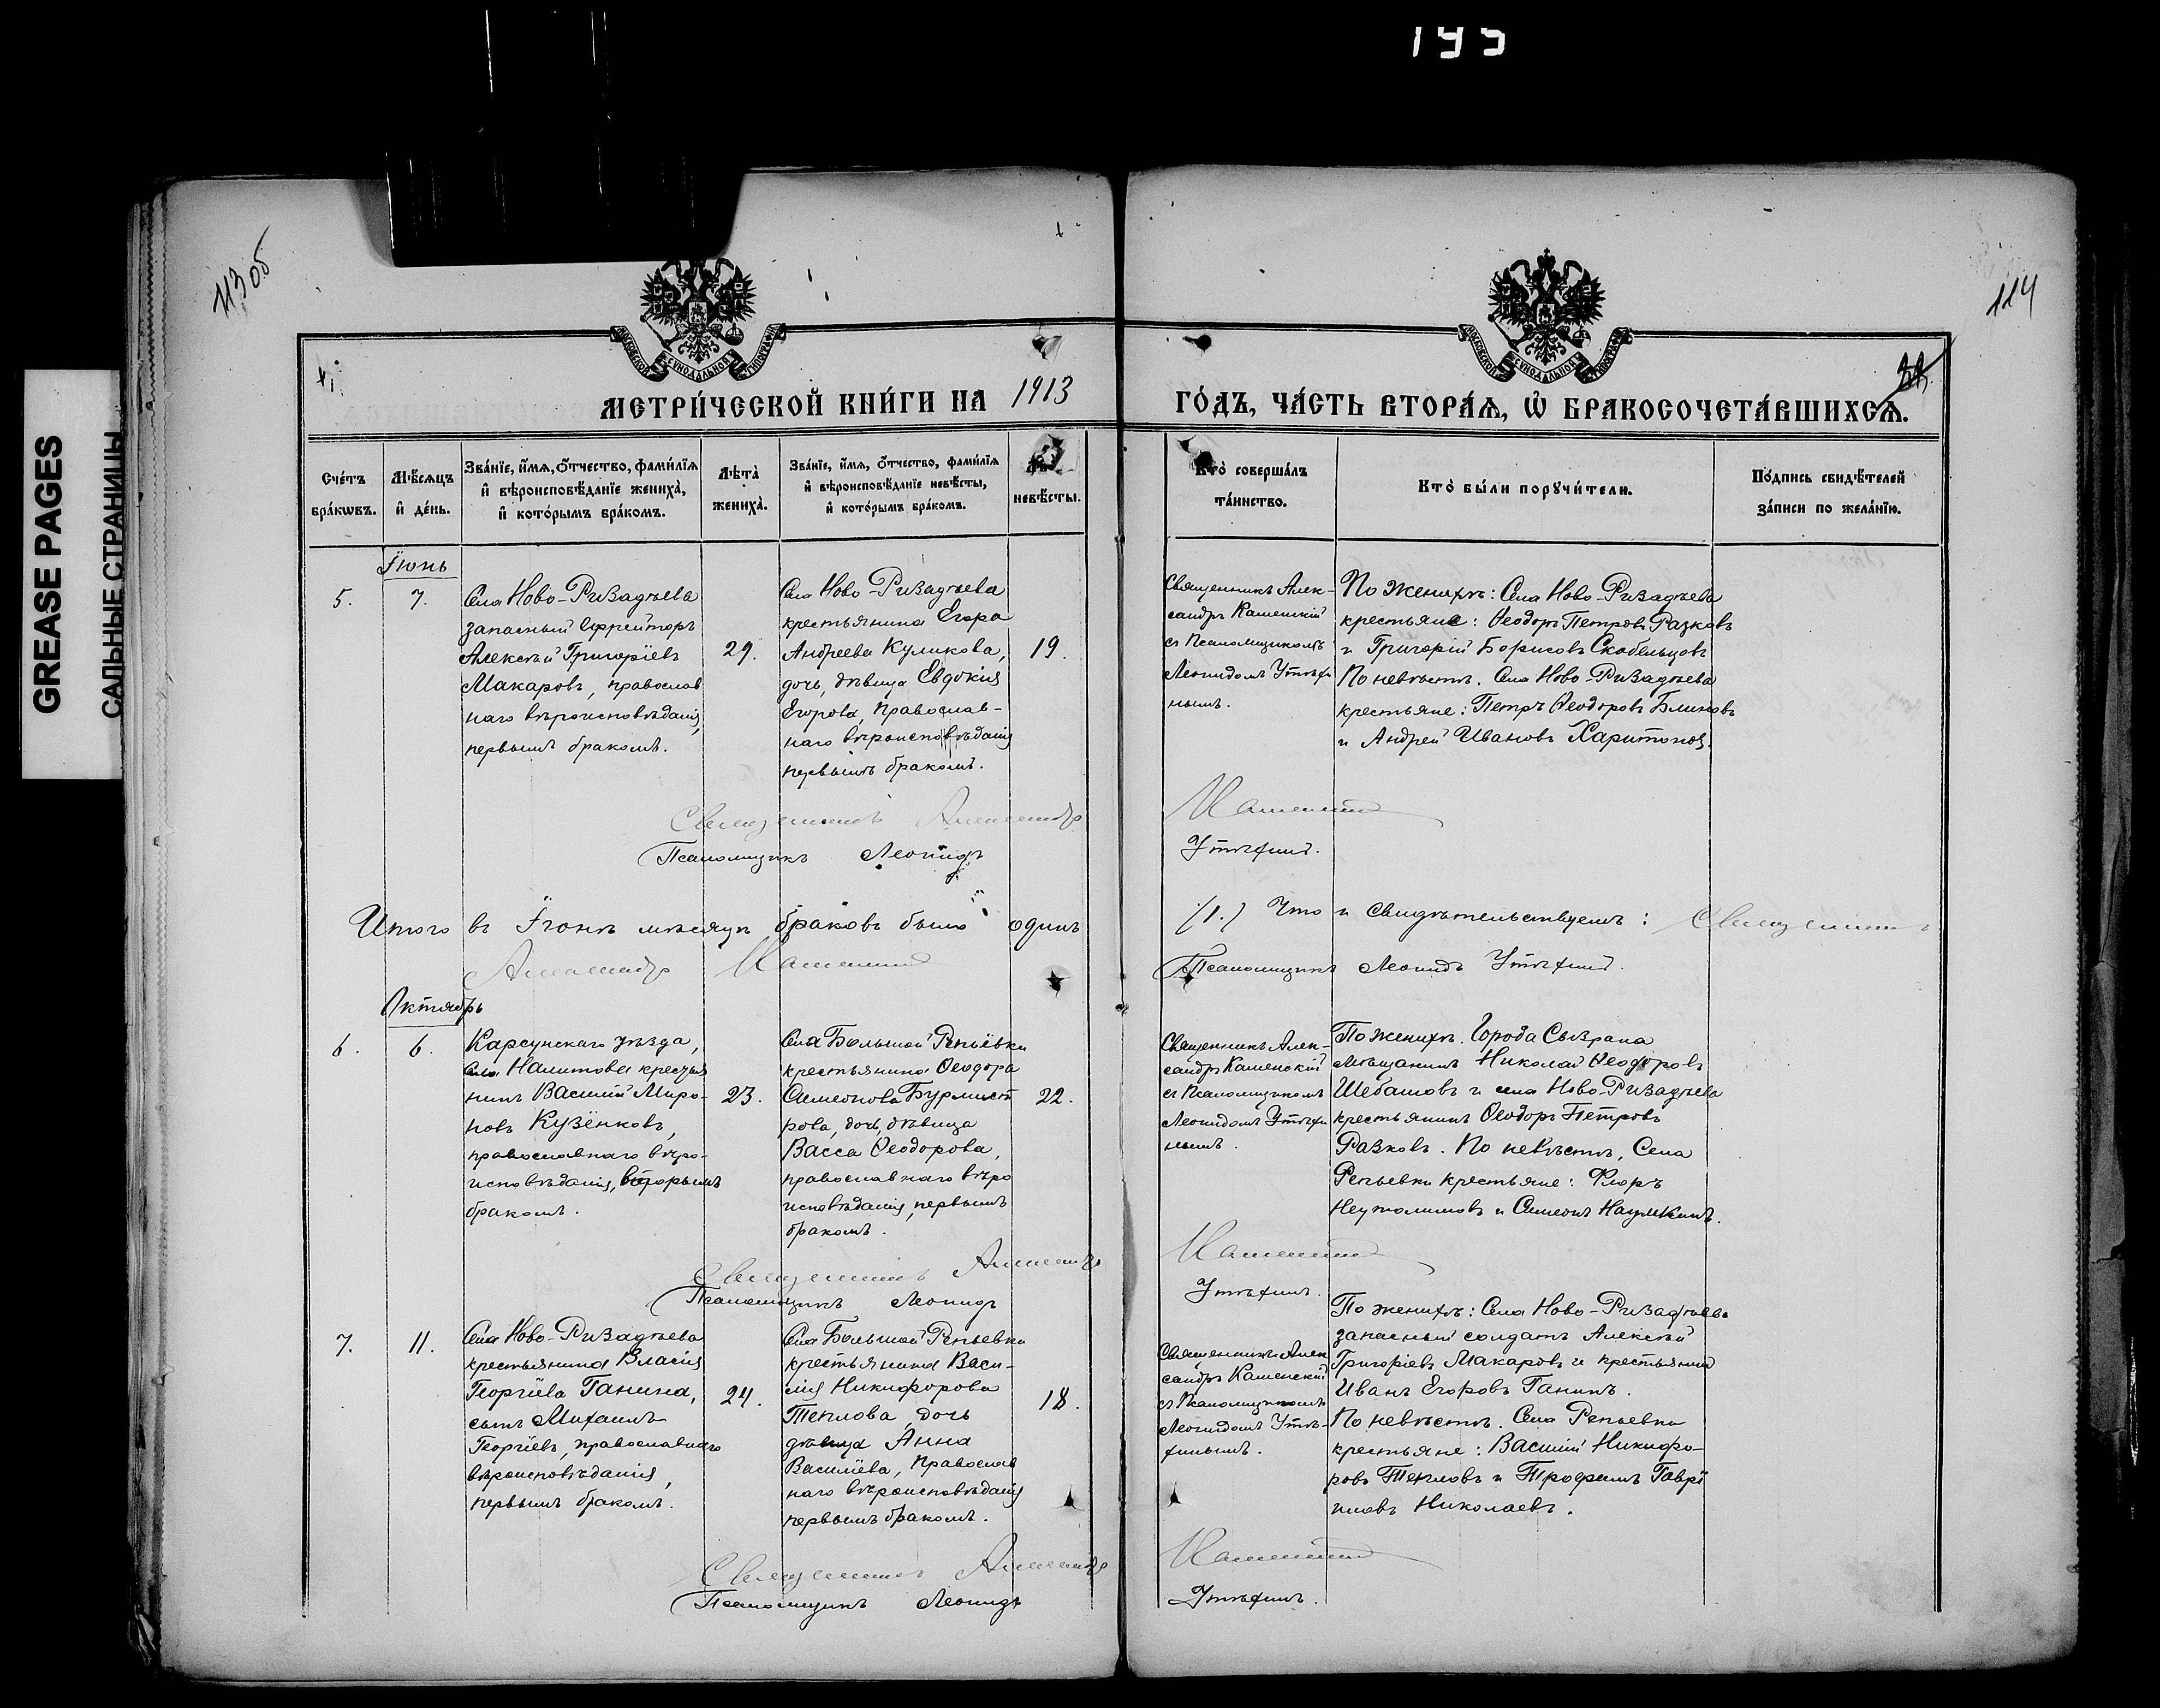 195
GREASE PAGES
САЛЬНЫЕ СТРАНИЦЫ
113 об
114
МЕТРИ́ЧЕСКОЙ КНИ́ГИ НА 1913 ГО́ДЪ, ЧА́СТЬ ВТОРА́Ѧ, Ѡ҆ БРАКОСОЧЕТА́ВШИХСѦ.
Сче́тъ бра́кѡвъ.
Мѣ́сѧцъ и҆ де́нь.
Зва́нїе, и҆́мѧ, ѻ҆́тчество, фами́лїѧ и҆ вѣроисповѣ́данїе жениха̀, и҆ кото́рымъ бра́комъ.
Лѣ́та̀ жениха̀.
Зва́нїе, и҆́мѧ, ѻ҆́тчество, фами́лїѧ и҆ вѣроисповѣ́данїе невѣ́сты, и҆ кото́рымъ бра́комъ.
невѣ́сты.
Кто̀ соверша́лъ та́инство.
Кто̀ бы́ли порꙋчи́тели.
По́дпись свидѣ́телей за́писи по жела́нїю.
Іюнь
5.
7.
Села Ново-Ризадѣева
запасный ефрейторъ
Алексѣй Григорїевъ
Макаровъ, православ
наго вѣроисповѣданія,
первымъ бракомъ.
29.
Села Ново-Ризадѣева
крестьянина Егора
Андреева Куликова,
дочь, дѣвица Евдокія
Егорова, православ-
наго вѣроисповѣданія
первымъ бракомъ.
19.
Священникъ Алек-
сандръ Каменскій
съ Псаломщикомъ
Леонидомъ Утѣхи
нымъ.
По женихѣ: Села Ново-Ризадѣева
крестьяне: Ѳеодоръ Петровъ Разковъ
и Григорій Борисовъ Скобельцовъ
По невѣстѣ. Села Ново-Ризадѣева
крестьяне: Петръ Ѳеодоровъ Блиновъ
и Андрей Ивановъ Харитоновъ.
Священникъ Александръ Каменскій
Псаломщикъ Леонидъ Утѣхинъ.
Итого въ Іюнѣ мѣсяцѣ браковъ было одинъ (1.) Что и свидѣтельствуемъ: Священникъ
Александръ Каменскій Псаломщикъ Леонидъ Утѣхинъ.
Октябрь
6.
6.
Карсунскаго уѣзда,
села Налитова крестья
нинъ Василій Миро-
новъ Кузёнковъ,
православнаго вѣро-
исповѣданія, вторымъ
бракомъ.
23.
Села Большой Репьёвки
крестьянина Ѳеодора
Симеонова Бурмист
рова, дочь, дѣвица
Васса Ѳеодорова,
православнаго вѣро
исповѣданія, первымъ
бракомъ.
22.
Священникъ Алек-
сандръ Каменскій
съ Псаломщикомъ
Леонидомъ Утѣхи
нымъ.
По женихѣ. Города Сызрана
мѣщанинъ Николай Ѳеодоровъ
Шебашовъ и села Ново-Ризадѣева
крестьянинъ Ѳеодоръ Петровъ
Разковъ. По невѣстѣ, Села
Репьевки крестьяне: Флоръ
Неутолимовъ и Симеонъ Наумкинъ.
Священникъ Александръ Каменскій
Псаломщикъ Леонидъ Утѣхинъ.
7.
11.
Села Ново-Ризадѣева
крестьянина Власія
Георгїева Ганина,
сынъ Михаилъ
Георгїевъ, православнаго
вѣроисповѣданія,
первымъ бракомъ.
24.
Села Большой Репьевки
крестьянина Васи-
лія Никифорова
Теплова, дочь
дѣвица Анна
Василїева, православ
наго вѣроисповѣданія
первымъ бракомъ.
18.
Священникъ Алек
сандръ Каменскій
съ Псаломщикомъ
Леонидомъ Утѣ-
хинымъ.
По женихѣ: Села Ново-Ризадѣева
запасный солдатъ Алексѣй
Григорїевъ Макаровъ и крестьянинъ
Иванъ Егоровъ Ганинъ.
По невѣстѣ. Села Репьевки
крестьяне: Василій Никифо-
ровъ Тепловъ и Трофимъ Гаврї
иловъ Николаевъ.
Священникъ Александръ Каменскій
Псаломщикъ Леонидъ Утѣхинъ.